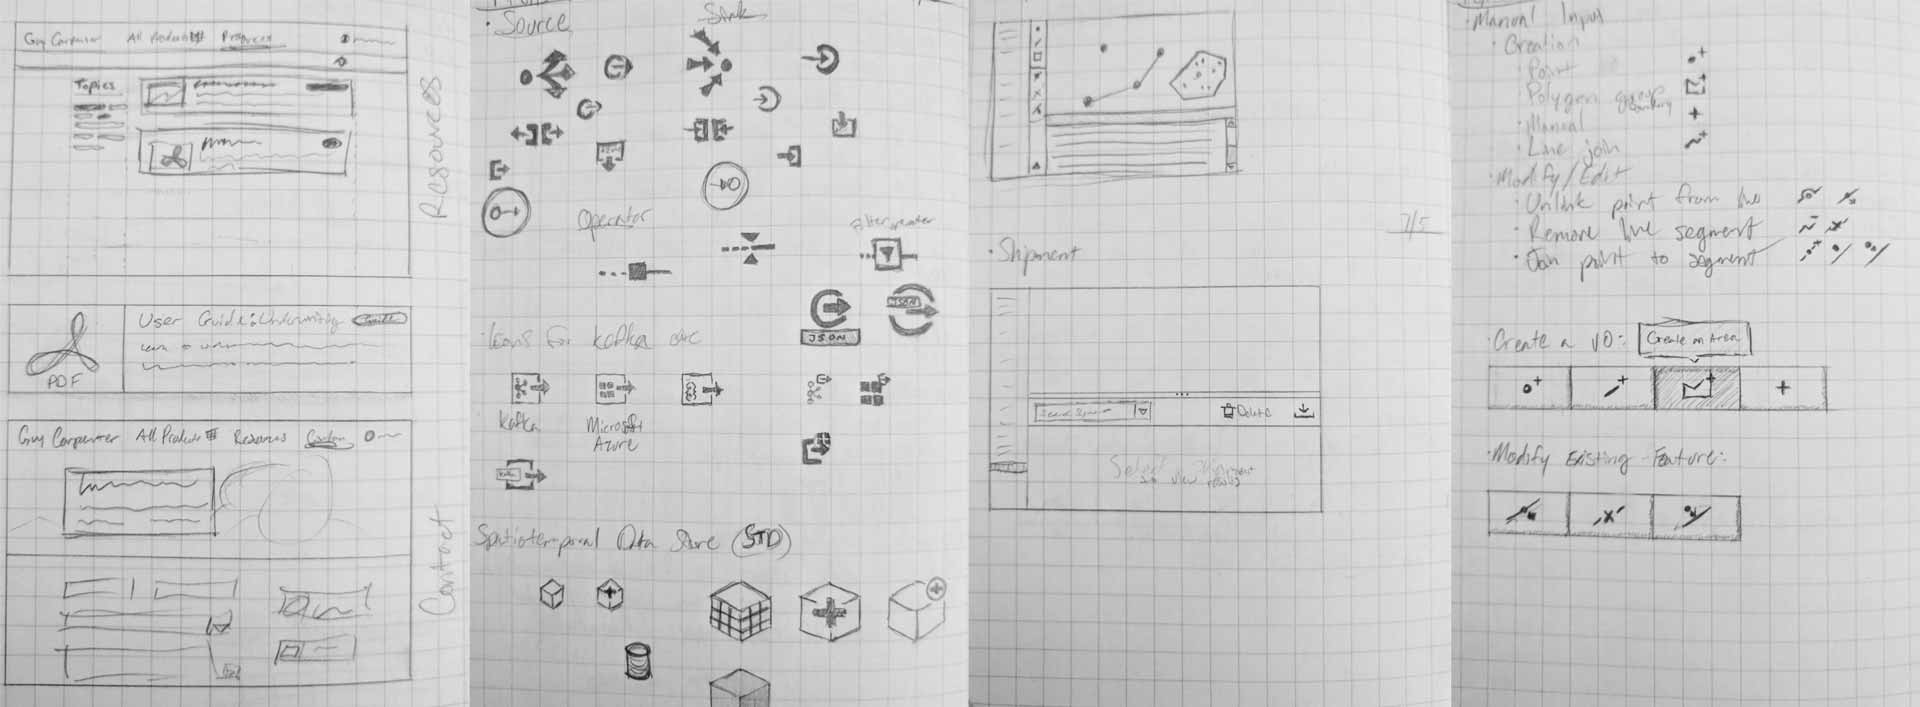 Guy Carpenter All Products Resources
Topics
Resources
User Guide: Underwriting
PDF
Guy Carpenter All Products Resources
Contact
• Source
Sink
Operator
JSON
JSON
• Icons for Kafka etc
Kafka
Microsoft
Azure
Kafka
Spatiotemporal Data Store (STD)
7/5
• Shipment
Delete
Select
to view
• Manual Input
• Creation
• Point
• Polygon group
• Manual
• Line join
• Modify/Edit
• Unlink point from line
• Remove line segment
• Join point to segment
• Create a VO: Create an Area
• Modify Existing Feature: